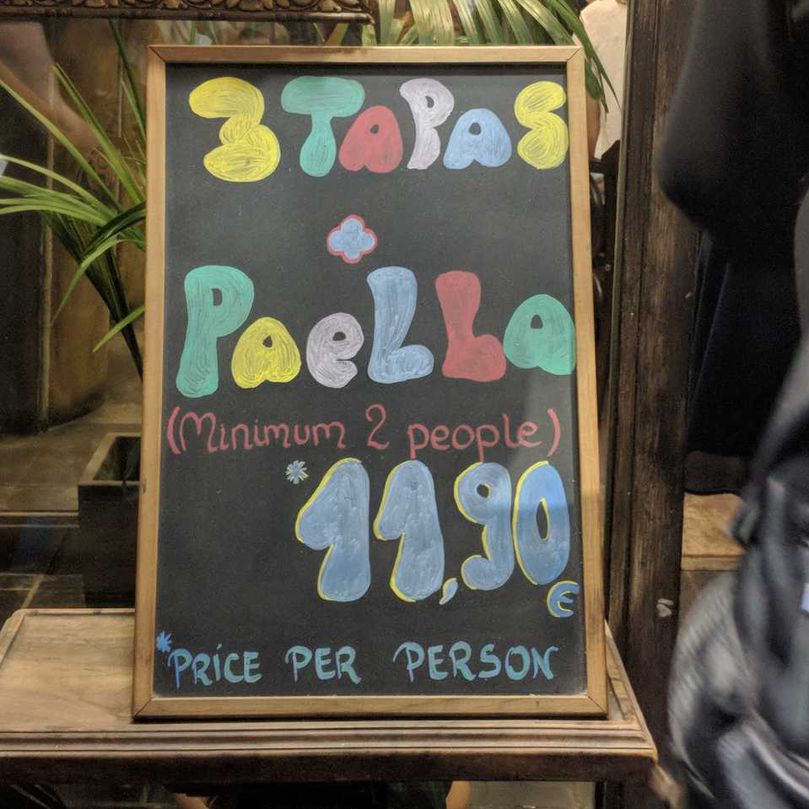 3 TAPAS
+
PaeLLa
(Minimum 2 people)
*11,90 €
*PRiCE PER PERSON